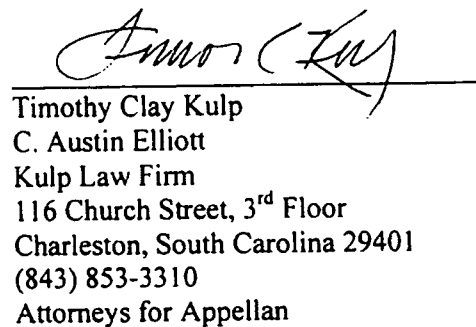 Timothy Clay Kulp
C. Austin Elliott
Kulp Law Firm
116 Church Street, 3rd Floor
Charleston, South Carolina 29401
(843) 853-3310
Attorneys for Appellan